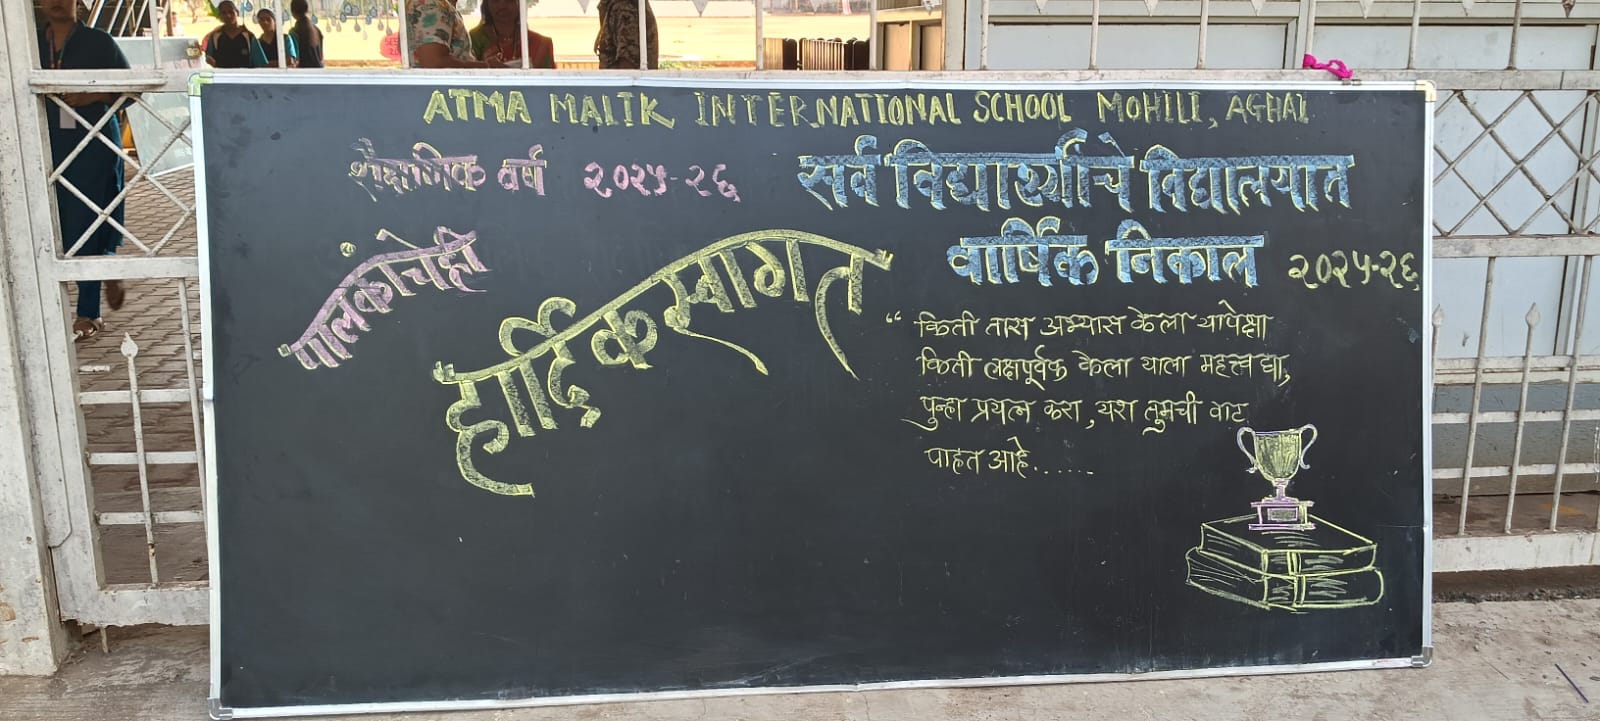 ATMA MALIK INTERNATIONAL SCHOOL MOHILI, AGHAI
शैक्षणिक वर्ष २०२५-२६
सर्व विद्यार्थ्यांचे विद्यालयात
पालकांचेही
हार्दिक स्वागत
वार्षिक निकाल २०२५-२६
“ किती तास अभ्यास केला यापेक्षा
किती लक्षपूर्वक केला याला महत्त्व द्या,
पुन्हा प्रयत्न करा, यश तुमची वाट
पाहत आहे......